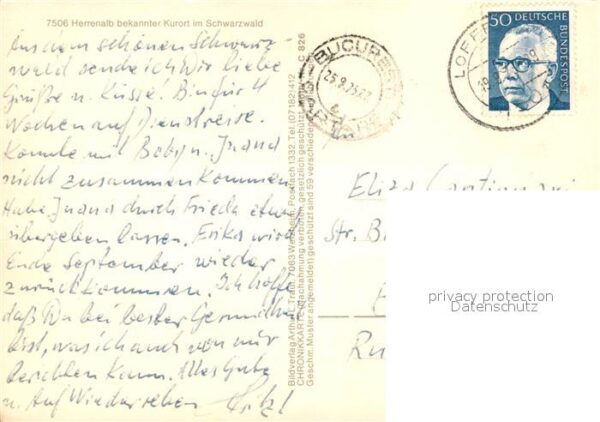 7506 Herrenalb bekannter Kurort im Schwarzwald
Aus dem schönen Schwarz-
wald sende ich Dir liebe
Grüße u. Küsse! Bin für 4
Wochen auf Dienstreise.
Konnte mit Baby u. Juana
nicht zusammen kommen
Habe Juana durch Frieda etw.
übergeben lassen, Erika wird
Ende September wieder
zurückkommen. Ich hoffe
daß Du bei bester Gesundheit
bist, was ich auch von mir
berichten kann. Alles Gute
u. Auf Wiedersehen
Bildverlag Arthur Traut, 7063 Welzheim, Postfach 1332, Tel. (07182) 412
CHRONIKKARTE (Nachahmung verboten, gesetzlich geschützt)
Geschm. Musterangemeldet) geschützt sind 59 verschiedene
C 826
BUCUREȘTI
25.9.75
50 DEUTSCHE
BUNDESPOST
LOFF
Eliza
Str. B
Ru
privacy protection
Datenschutz